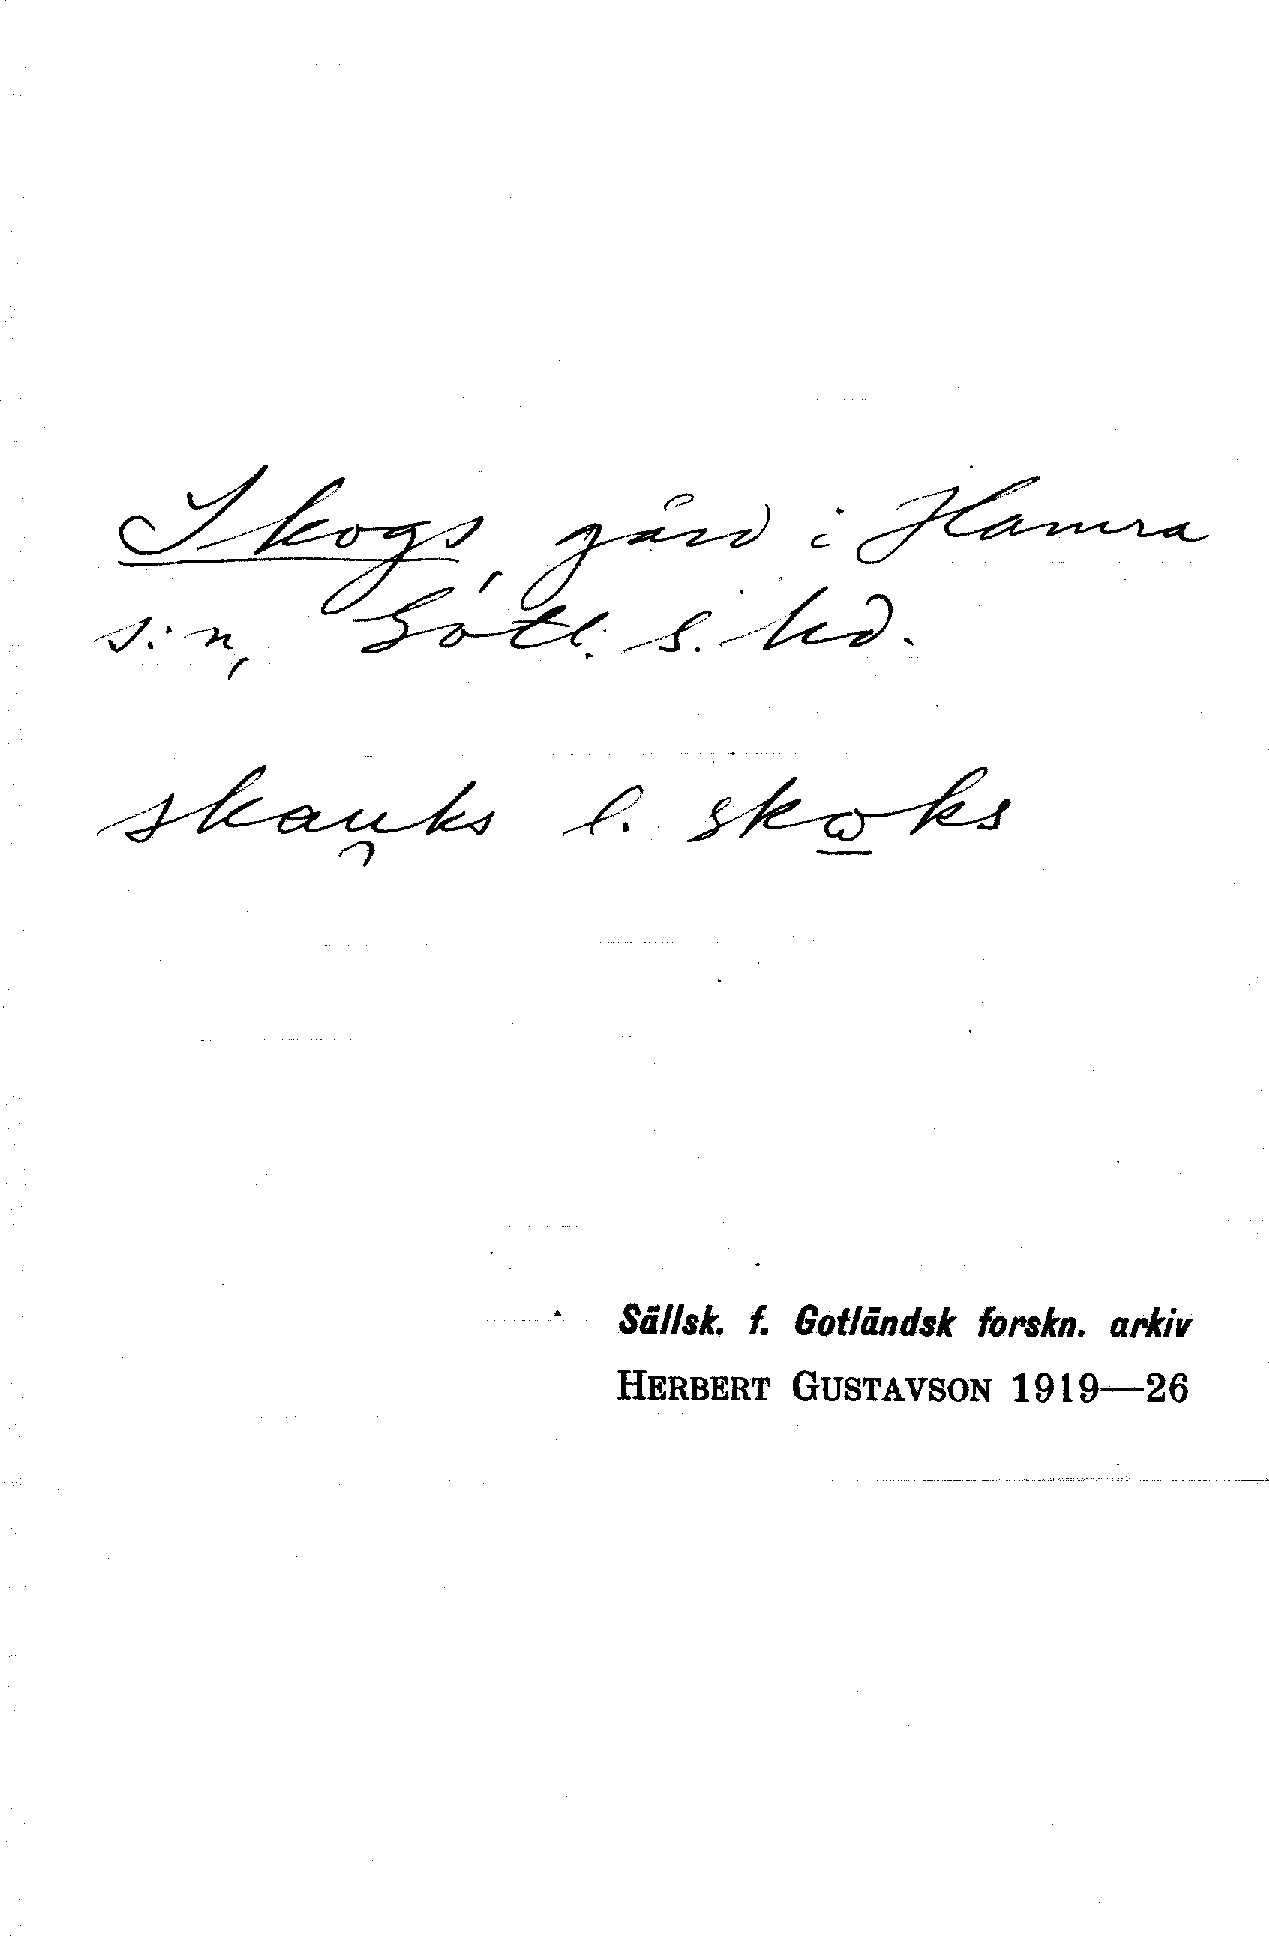 Skogs, gård i Hamra
s:n, Gotl. s. hd.
skau̯ks l. skω̲ks
Sällsk. f. Gotländsk forskn. arkiv
HERBERT GUSTAVSON 1919—26